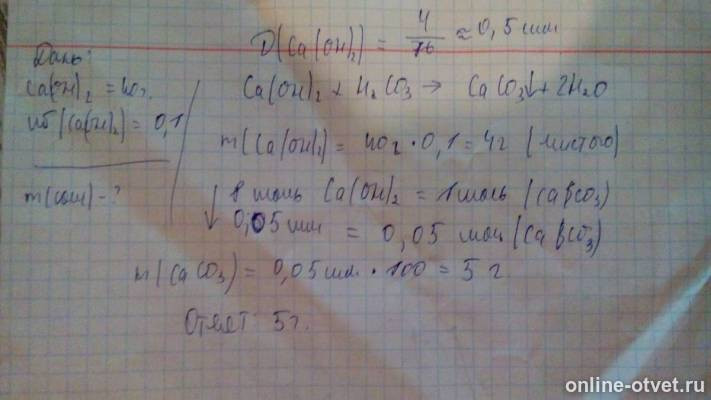 Дано:
Ca(OH)₂ = 40г.
ω(Ca(OH)₂) = 0,1
m(соли) - ?
ν(Ca(OH)₂) = 4/76 ≈ 0,5 мол
Ca(OH)₂ + H₂CO₃ → CaCO₃↓ + 2H₂O
m(Ca(OH)₂) = 40г · 0,1 = 4г (чистого)
↓ 1 моль Ca(OH)₂ = 1 моль (CaCO₃)
0,05 мол = 0,05 мол (CaCO₃)
m(CaCO₃) = 0,05 мол · 100 = 5 г
Ответ 5г.
online-otvet.ru